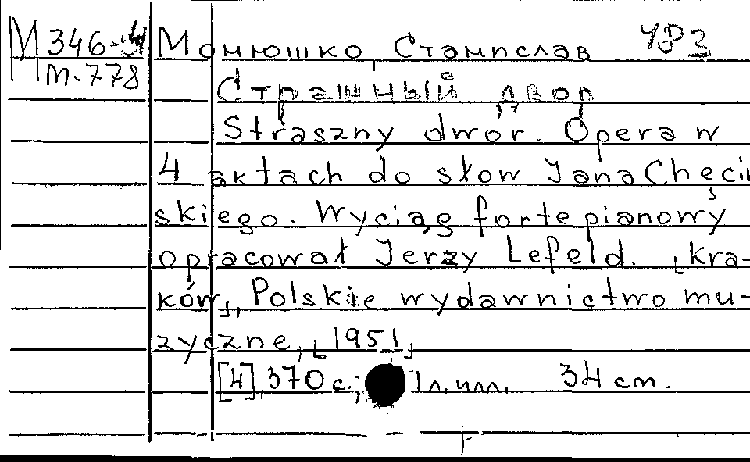 М 346-4 Монюшко, Станислав
т. 778 Страшный двор
Straszny dwór. Opera w
4 aktach do słow Jana Chęciń
skiego. Wyciąg fortepianowy
opracował Jerzy Lefeld. [Kra-
ków], Polskie wydawnictwo mu-
zyczne, [1951]
[4], 370 с.; 1 л. илл. 34 cm.